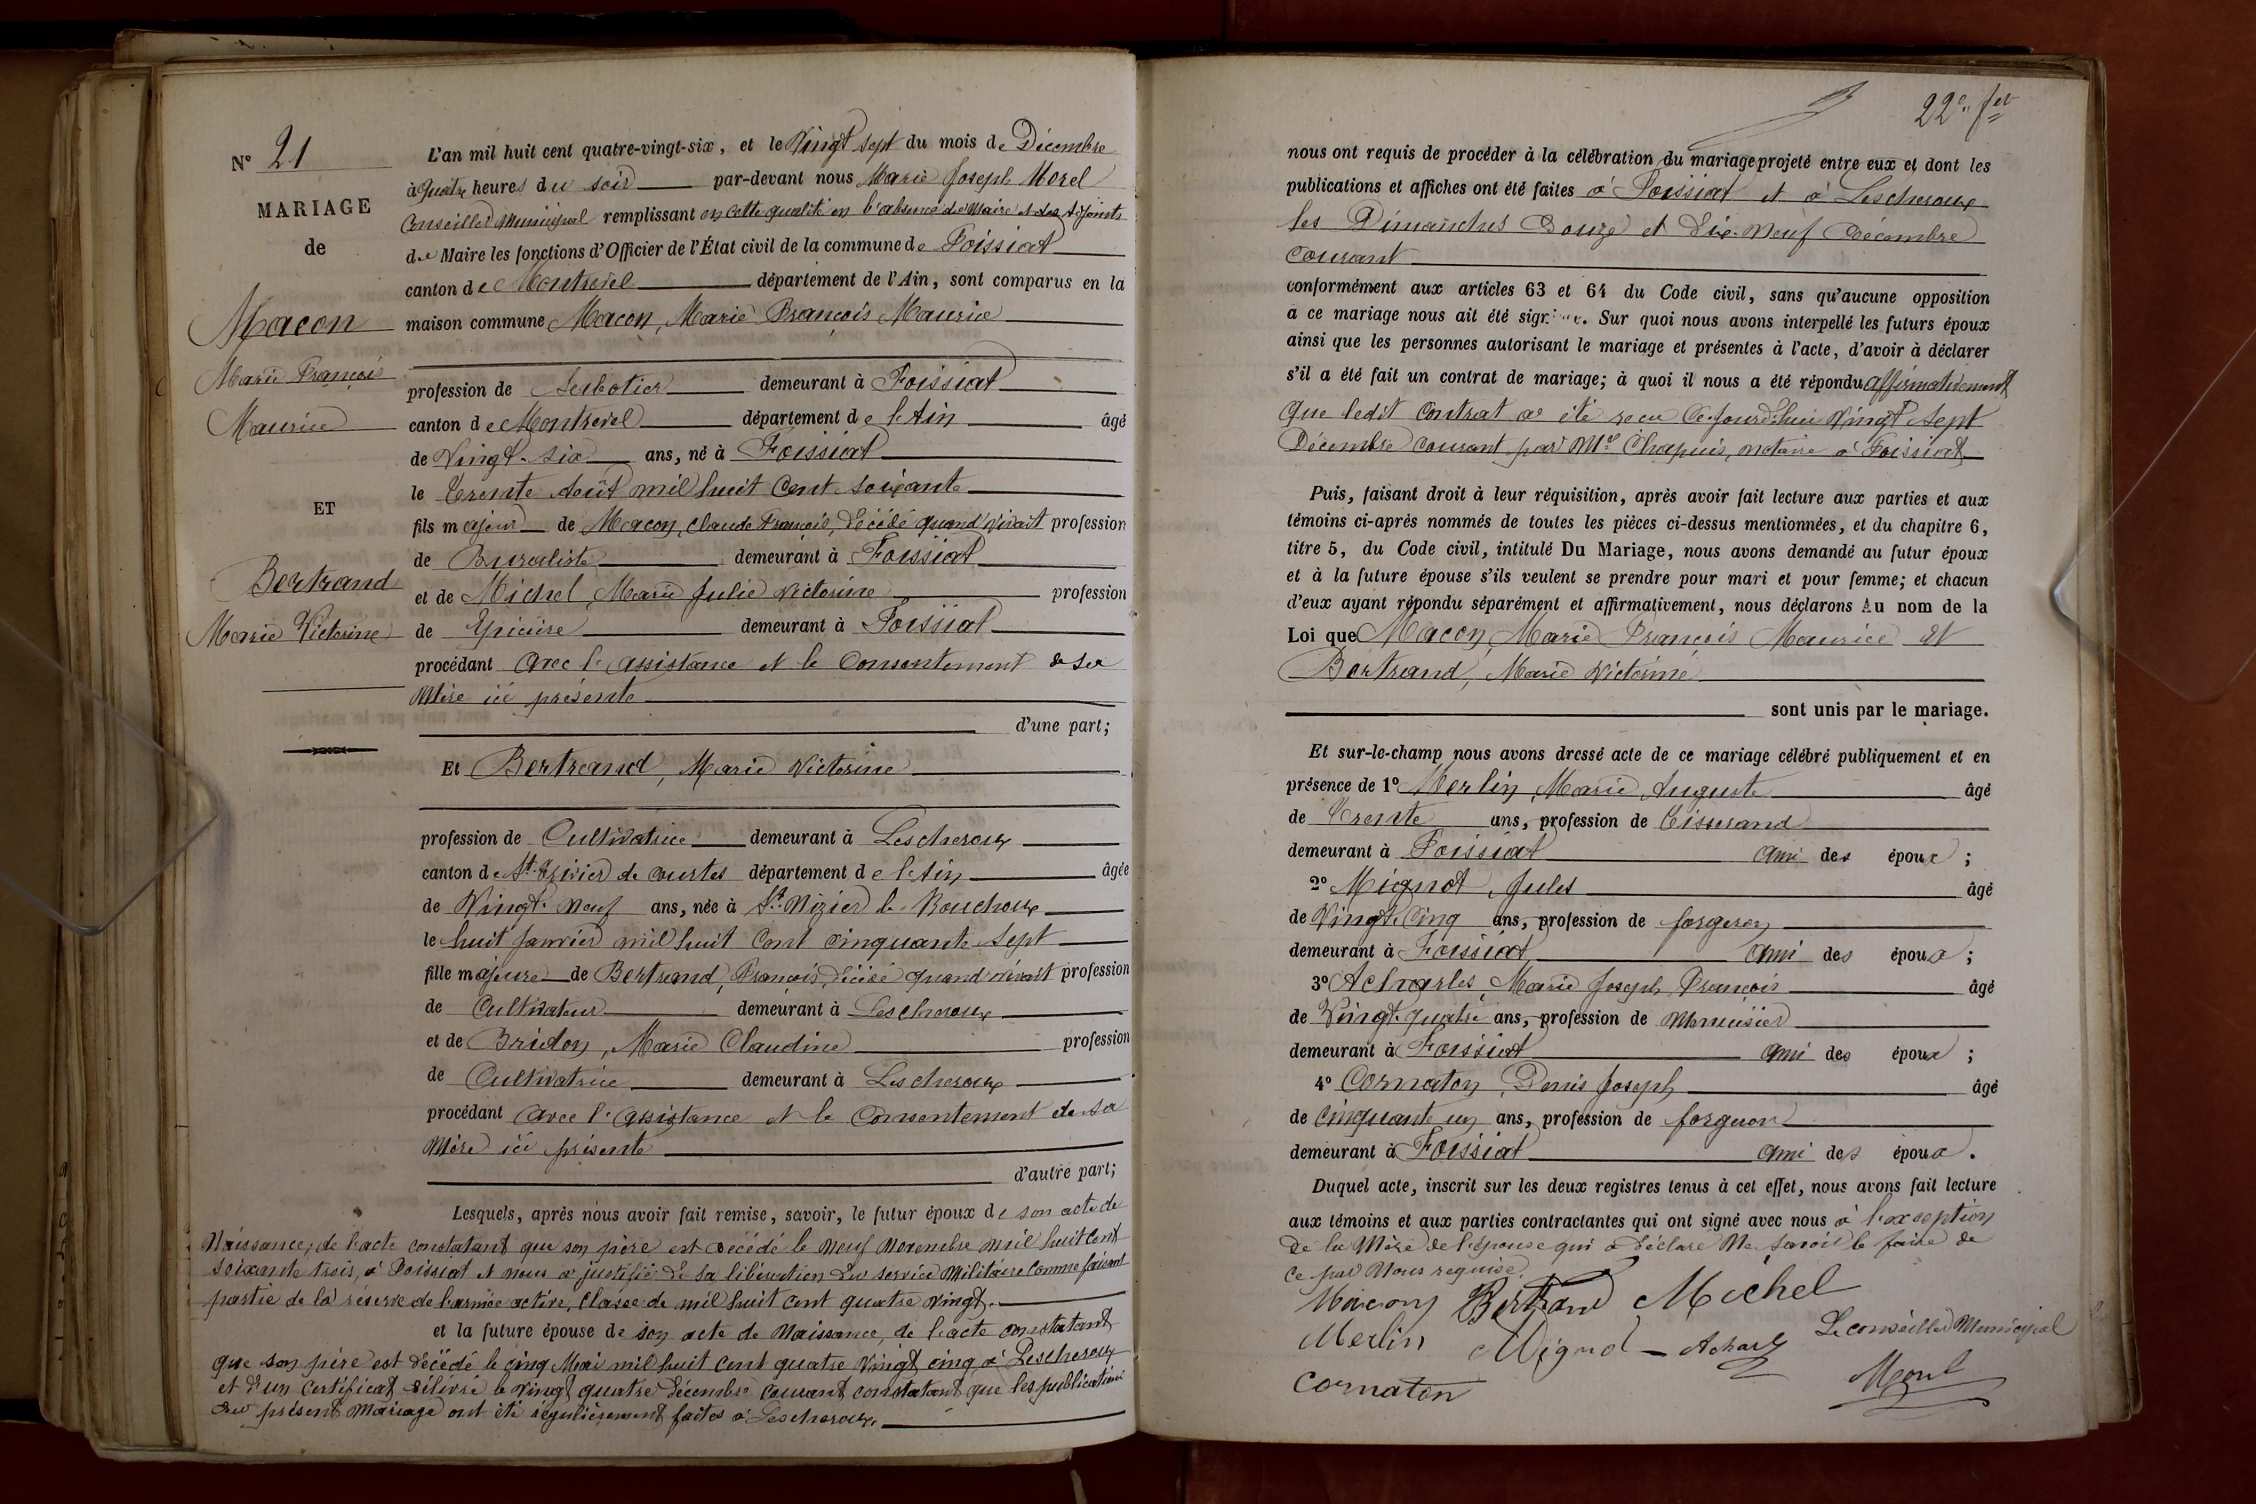 N° 21
MARIAGE
de
Macon
Marie François
Maurice
ET
Bertrand
Marie Victorine
L'an mil huit cent quatre-vingt-six, et le Vingt sept du mois de Décembre
à quatre heures du soir par-devant nous Marie Joseph Morel
Conseiller Municipal remplissant en cette qualité en l'absence du Maire et des Adjoints
de Maire les fonctions d'Officier de l'État civil de la commune de Foissiat
canton de Montrevel département de l'Ain, sont comparus en la
maison commune Macon, Marie François Maurice
profession de Sabotier demeurant à Foissiat
canton de Montrevel département de l'Ain âgé
de Vingt-six ans, né à Foissiat
le trente Août mil huit cent soixante
fils majeur de Macon, Claude François, décédé quand vivait profession
de Buraliste demeurant à Foissiat
et de Michel, Marie Julie Victorine profession
de Epicière demeurant à Foissiat
procédant avec l'assistance et le Consentement de sa
Mère ici présente
d'une part;
Et Bertrand, Marie Victorine
profession de Cultivatrice demeurant à Lescheroux
canton de St. Trivier de courtes département de l'Ain âgée
de Vingt-neuf ans, née à St. Nizier le Bouchoux
le huit Janvier mil huit cent cinquante sept
fille majeure de Bertrand, François, décédé quand vivait profession
de Cultivateur demeurant à Lescheroux
et de Bridon, Marie Claudine profession
de Cultivatrice demeurant à Lescheroux
procédant avec l'assistance et le Consentement de sa
Mère ici présente
d'autre part;
Lesquels, après nous avoir fait remise, savoir, le futur époux de son acte de
Naissance, de l'acte constatant que son père est décédé le neuf Novembre mil huit cent
soixante trois, à Foissiat et nous a justifié de sa libération du service Militaire comme faisant
partie de la réserve de l'armée active, Classe de mil huit cent quatre vingt.
et la future épouse de son acte de Naissance, de l'acte constatant
que son père est décédé le cinq Mai mil huit cent quatre vingt cinq à Lescheroux
et d'un certificat délivré le vingt quatre décembre courant constatant que les publications
du présent Mariage ont été régulièrement faites à Lescheroux.
22e. fet
nous ont requis de procéder à la célébration du mariage projeté entre eux et dont les
publications et affiches ont été faites à Foissiat et à Lescheroux
les Dimanches Douze et Dix-Neuf Décembre
courant
conformément aux articles 63 et 64 du Code civil, sans qu'aucune opposition
a ce mariage nous ait été sig. Sur quoi nous avons interpellé les futurs époux
ainsi que les personnes autorisant le mariage et présentes à l'acte, d'avoir à déclarer
s'il a été fait un contrat de mariage; à quoi il nous a été répondu affirmativement
Que ledit contrat a été reçu Cejourd'hui Vingt sept
Décembre courant par Me Chapuis, notaire à Foissiat
Puis, faisant droit à leur réquisition, après avoir fait lecture aux parties et aux
témoins ci-après nommés de toutes les pièces ci-dessus mentionnées, et du chapitre 6,
titre 5, du Code civil, intitulé Du Mariage, nous avons demandé au futur époux
et à la future épouse s'ils veulent se prendre pour mari et pour femme; et chacun
d'eux ayant répondu séparément et affirmativement, nous déclarons Au nom de la
Loi que Macon, Marie François Maurice et
Bertrand, Marie Victorine
sont unis par le mariage.
Et sur-le-champ nous avons dressé acte de ce mariage célébré publiquement et en
présence de 1° Merlin, Marie Auguste âgé
de trente ans, profession de tisserand
demeurant à Foissiat ami des époux ;
2° Mignot, Jules âgé
de Vingt-Cinq ans, profession de forgeron
demeurant à Foissiat ami des époux ;
3° Acharles, Marie Joseph François âgé
de Vingt-quatre ans, profession de Menuisier
demeurant à Foissiat ami des époux ;
4° Cornaton, Denis Joseph âgé
de cinquante un ans, profession de forgeron
demeurant à Foissiat ami des époux.
Duquel acte, inscrit sur les deux registres tenus à cet effet, nous avons fait lecture
aux témoins et aux parties contractantes qui ont signé avec nous à l'exception
de la Mère de l'épouse qui a déclaré Ne Savoir le faire de
ce par Nous requise.
Macon Bertrand Michel
Merlin Mignot Acharles Le conseiller Municipal
Cornaton Morel